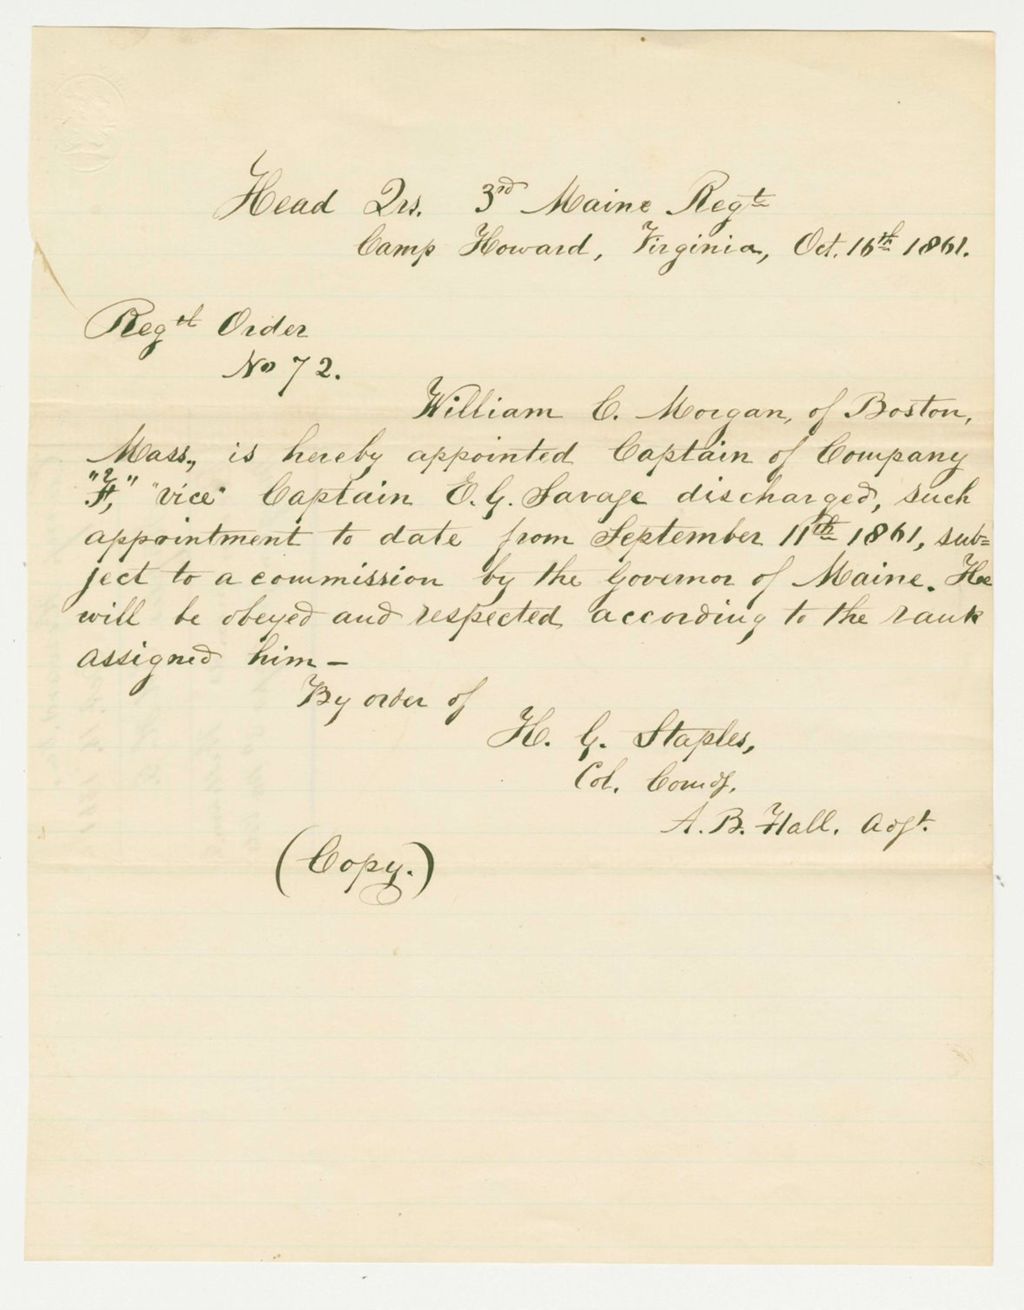 Head Qrs. 3rd Maine Regt
Camp Howard, Virginia, Oct. 16th 1861.
Regtl Order
No 72.
William C. Morgan, of Boston,
Mass., is hereby appointed Captain of Company
"F," "vice" Captain E. G. Savage discharged, such
appointment to date from September 11th 1861, sub=
ject to a commission by the Governor of Maine. He
will be obeyed and respected according to the rank
assigned him –
By order of
H. G. Staples,
Col. Comdg.
A. B. Hall. Adjt.
(Copy.)